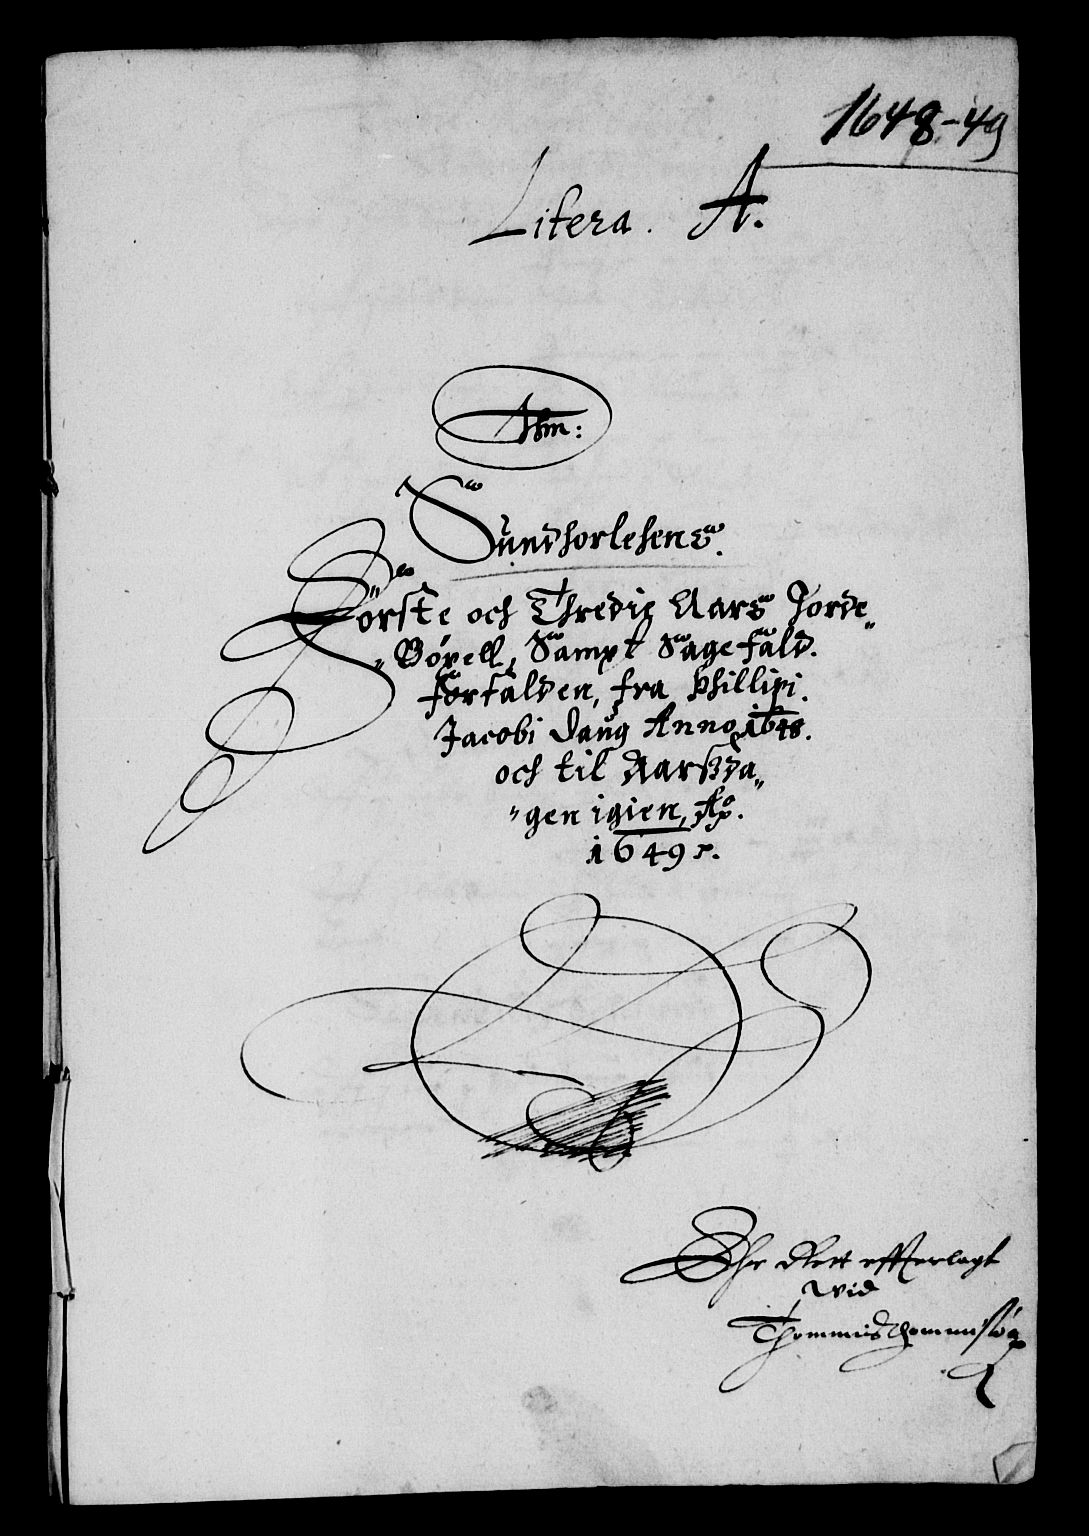 1648-49
Litera. A.
Sundhorlehens.
Förste och Thredie Aars Jorde„
„Bögell, Sampt Sagefald
forfalden, fra Phillipi
Jacobi Daug Anno 1648.
och til Aarßda„
„gen igien, Ao.
1649
Ehr Rett efftterlagt
wid